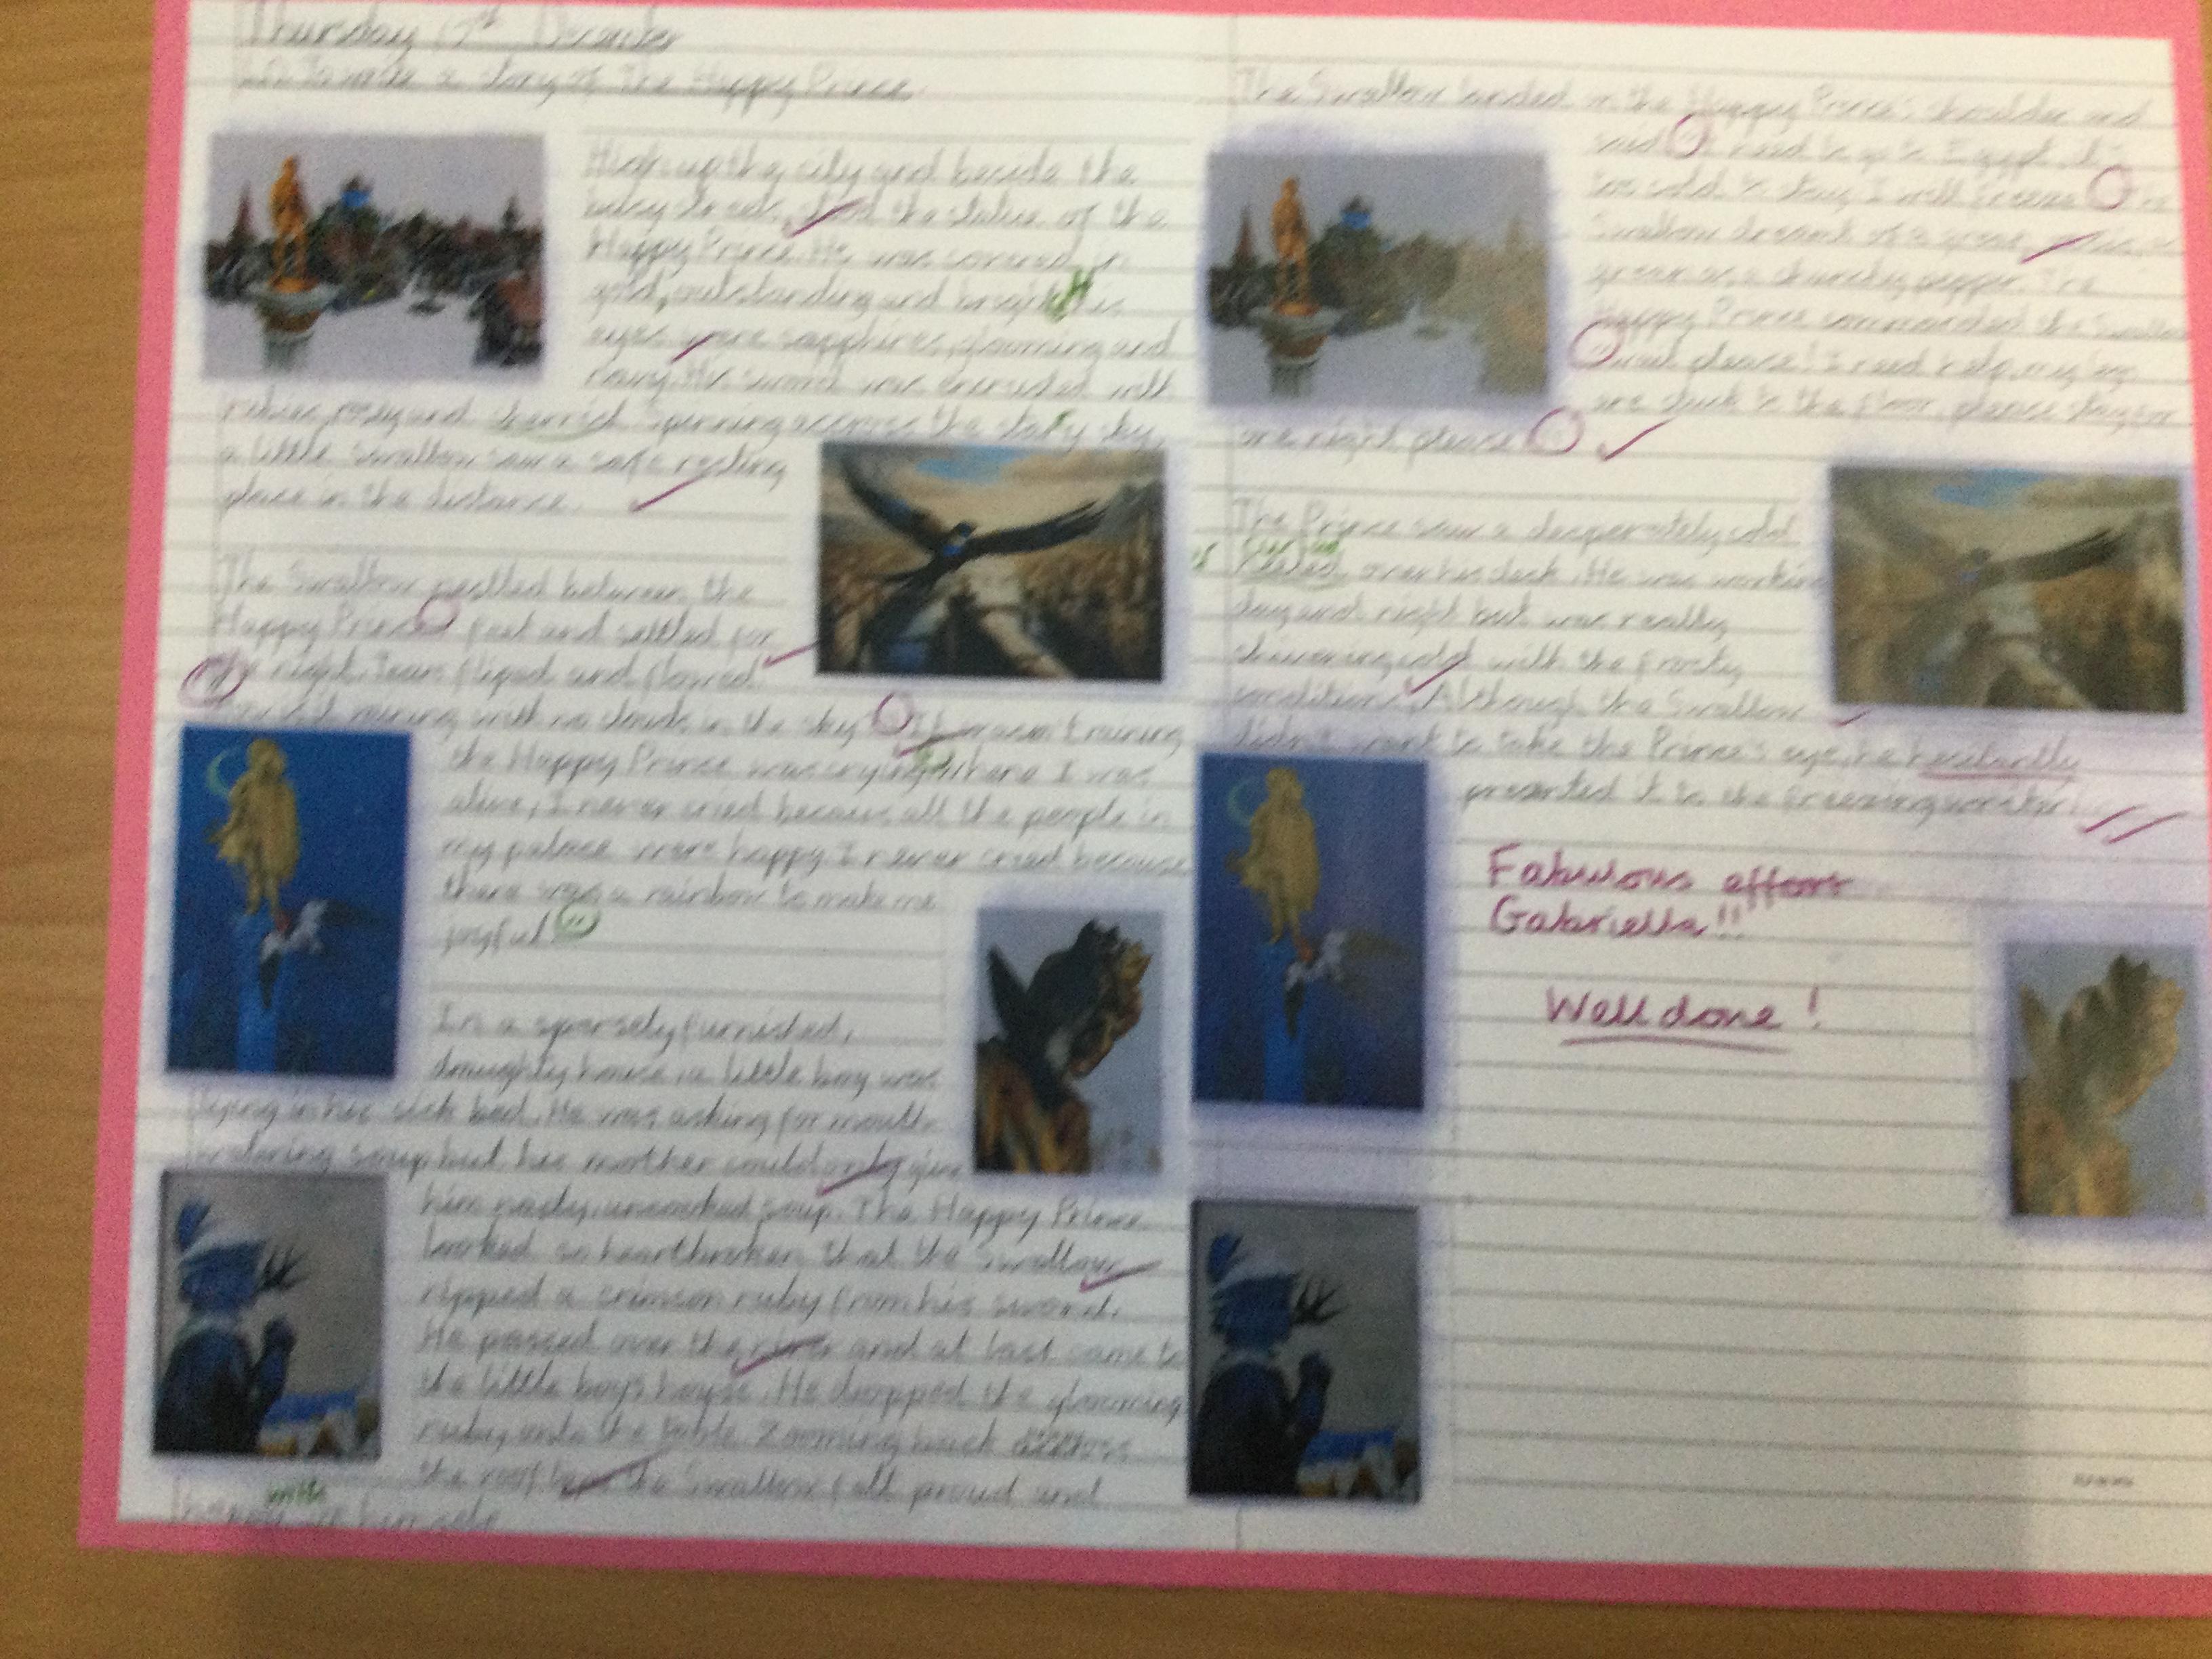 Thursday 17th December
LO To write a story of The Happy Prince
High up the city and beside the
busy streets, stood the statue of the
Happy Prince. He was covered in
gold, outstanding and bright. His
eyes were sapphires, gloaming and
navy. His sword was encrusted with
rubies, rosey and cherrish. Spinning accross the stary sky,
a little swallow saw a safe resting
place in the distance.
The Swallow nestled between the
Happy Prince feet and settled for
night. Tears and flowed.
raining with no clouds in the sky It wasn't raining
the Happy Prince was crying. Whene I was
alive, I never cried because all the people in
my palace were happy I never cried because
there was a rainbow to make me
joyful "
In a sparsely furnished,
draughty house, a little boy was
lying in his sick bed. He was asking for mouth-
watering soup but his mother could only give
him nasty, uncooked soup. The Happy Prince
looked so heartbroken that the Swallow
ripped a crimson ruby from his sword.
He passed over the river and at last came to
the little boys house. He dropped the gloaming
ruby onto the table. Zooming back across
the roof tops the Swallow felt proud and
with
happy himself.
The Swallow landed on the Happy Prince's shoulder and
said I need to go to Egypt. It's
too cold to stay I will freeze The
Swallow dreamt of a green
green as a chunchy pepper. The
Happy Prince commanded the Swallow
wait please! I need help, my legs
are stuck to the floor, please stay for
one night please
The Prince saw a desperately cold
over his desk. He was working
day and night but was really
shivering cold with the frosty
conditions. Although the Swallow
didn't want to take the Prince's eye, he hesitantly
presented it to the freezing writer!
Fabulous effort
Gabriella!!
Well done!